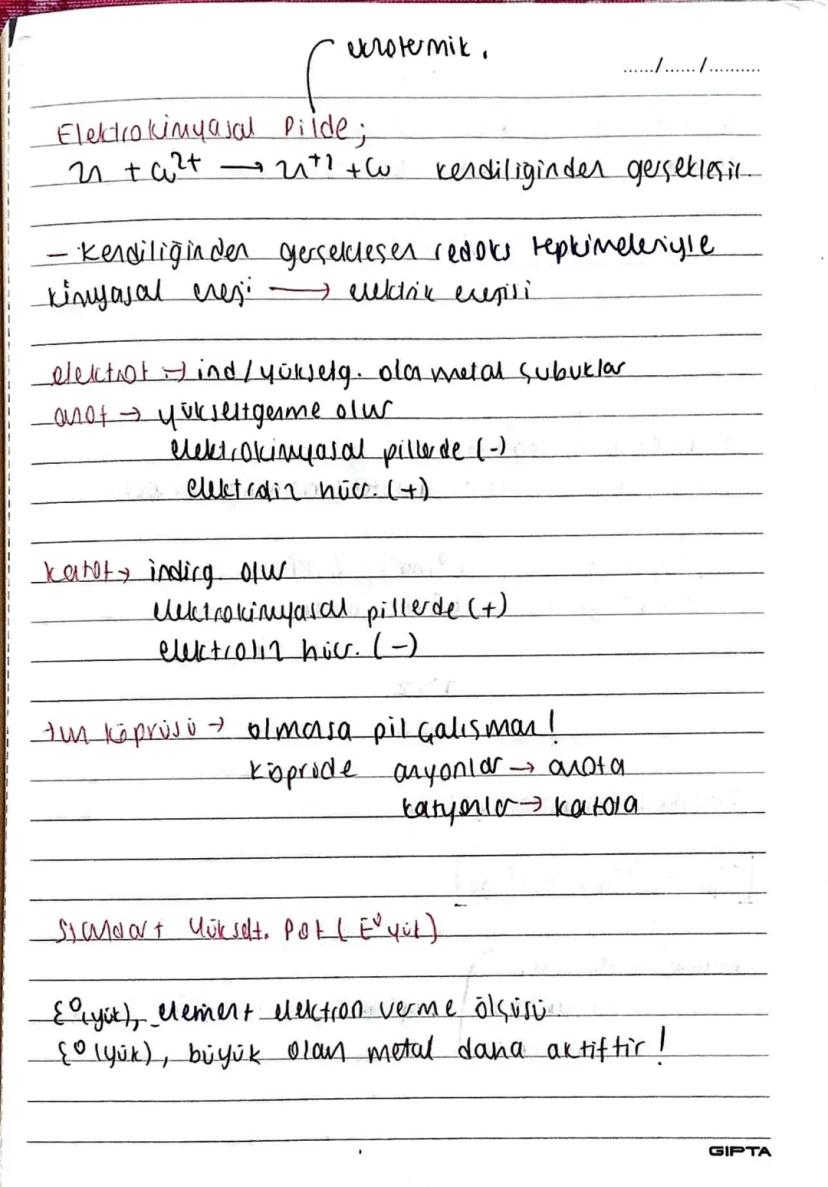 ekzotermik.
....../....../..........
Elektrokimyasal Pilde;
Zn + Cu2+ → Zn+2 + Cu kendiliginden gerçekleşir.
- Kendiliğinden gerçekleşen redoks tepkimeleriyle
kimyasal enerji → elektrik enerjisi
elektrot → ind/yükseltg. olan metal çubuklar
anot → yükseltgenme olur
elektrokimyasal pillerde (-)
elektroliz hücr. (+)
katot → indirg. olur
elektrokimyasal pillerde (+)
elektroliz hücr. (-)
tuz köprüsü → olmazsa pil çalışmaz!
köprüde anyonlar → anota
katyonlar → katota
Standart Yükselt. Pot (E⁰yük)
E⁰(yük), element elektron verme ölçüsü
E⁰(yük), büyük olan metal daha aktiftir!
GIPTA